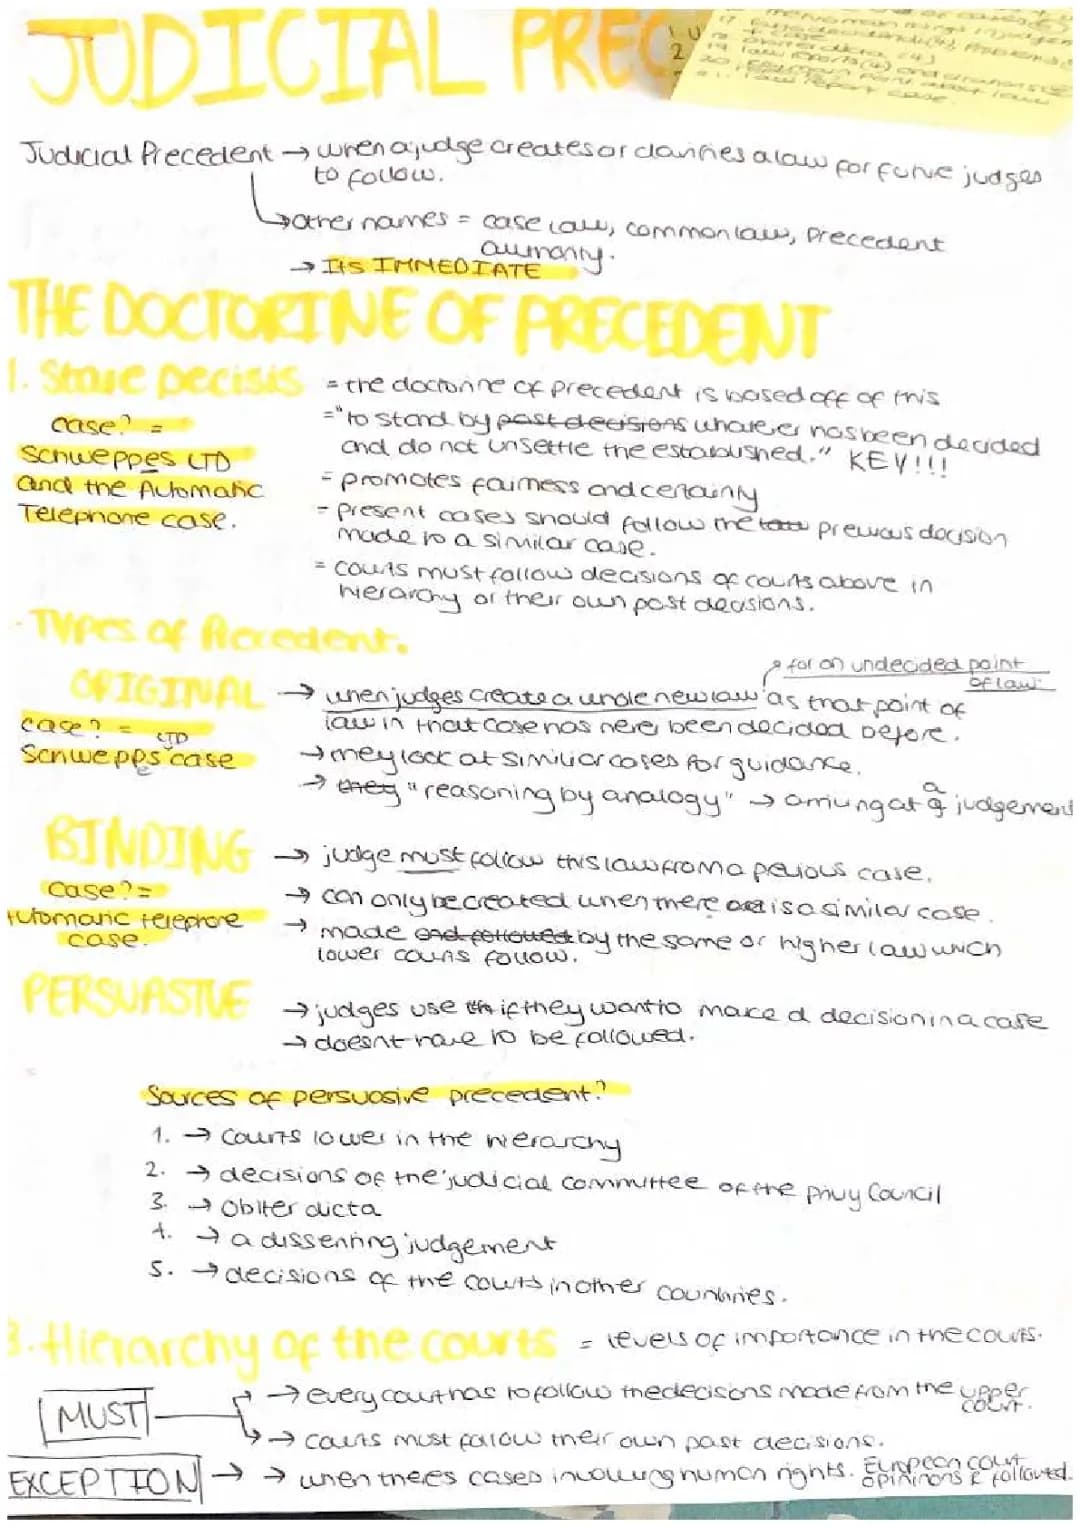 JUDICIAL PREC
17
19 law reports (4) and
20
law report case.
Judicial Precedent → when a judge creates or clarifies a law for future judges
to follow.
→ other names = case law, common law, precedent
authority.
→ Its IMMEDIATE
THE DOCTORINE OF PRECEDENT
1. Stare Decisis = the doctorine of precedent is based off of this
case? = 
="to stand by past decisions whatever has been decided
and do not unsettle the established." KEY!!!
Schweppes LTD
and the Automatic
Telephone case.
= promotes fairness and certainty
= present cases should follow the previous decision
made to a similar case.
= courts must follow decisions of courts above in
hierarchy or their own past decisions.
Types of Precedent.
for an undecided point
of law
ORIGINAL → when judges create a whole new law as that point of
law in that case has never been decided before.
case? = LTD
Schwepps e case
→ mey look at similior cases for guidance.
→ they "reasoning by analogy" → arriving at a judgement
BINDING → judge must follow this law from a pevious case.
case? =
Automatic telephone
case.
→ can only be created when there is a similar case.
→ made and followed by the same or higher law which
lower courts follow.
PERSUASIVE → judges use if they want to make a decision in a case
→ doesnt have to be followed.
Sources of persuasive precedent?
1. → Courts lower in the hierarchy
2. → decisions of the judicial committee of the privy Council
3. → Obiter dicta
4. → a dissenting judgement
5. → decisions of the courts in other countries.
3. Hierarchy of the courts = levels of importance in the courts.
MUST → every court has to follow the decisions made from the upper
court.
→ courts must follow their own past decisions.
EXCEPTION → → when theres cases involving human rights. European court
opininons r followed.